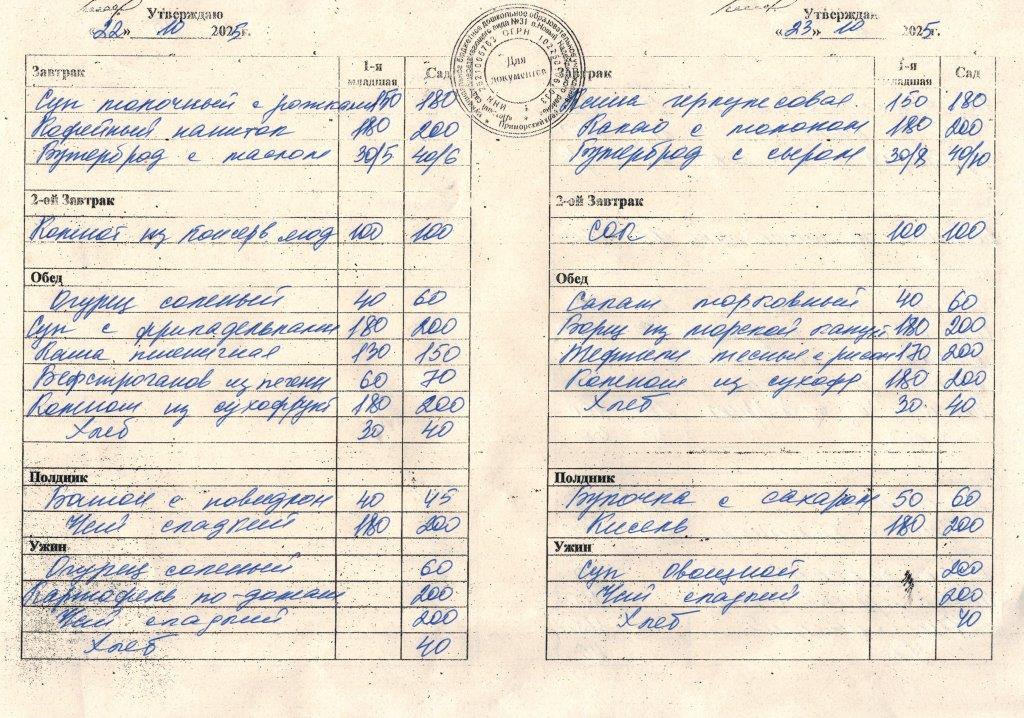 Утверждаю
«22» 10 2025г.
Завтрак 1-я младшая Сад
Суп молочный с рожками 150 180
Кофейный напиток 180 200
Бутерброд с маслом 30/5 40/6
2-ой Завтрак
Компот из консерв. ягод 100 100
Обед
Огурец соленый 40 60
Суп с фрикадельками 180 200
Каша пшеничная 130 150
Бефстроганов из печени 60 70
Компот из сухофрукт 180 200
Хлеб 30 40
Полдник
Батон с повидлом 40 45
Чай сладкий 180 200
Ужин
Огурец соленый 60
Картофель по-домаш 200
Чай сладкий 200
Хлеб 40
Утверждаю
«23» 10 2025г.
Завтрак 1-я младшая Сад
Каша геркулесовая 150 180
Какао с молоком 180 200
Бутерброд с сыром 30/8 40/10
2-ой Завтрак
Сок 100 100
Обед
Салат морковный 40 60
Борщ из морской капуст 180 200
Тефтели мясные с рисом 170 200
Компот из сухофр 180 200
Хлеб 30 40
Полдник
Булочка с сахаром 50 60
Кисель 180 200
Ужин
Суп овощной 200
Чай сладкий 200
Хлеб 40
Для документов